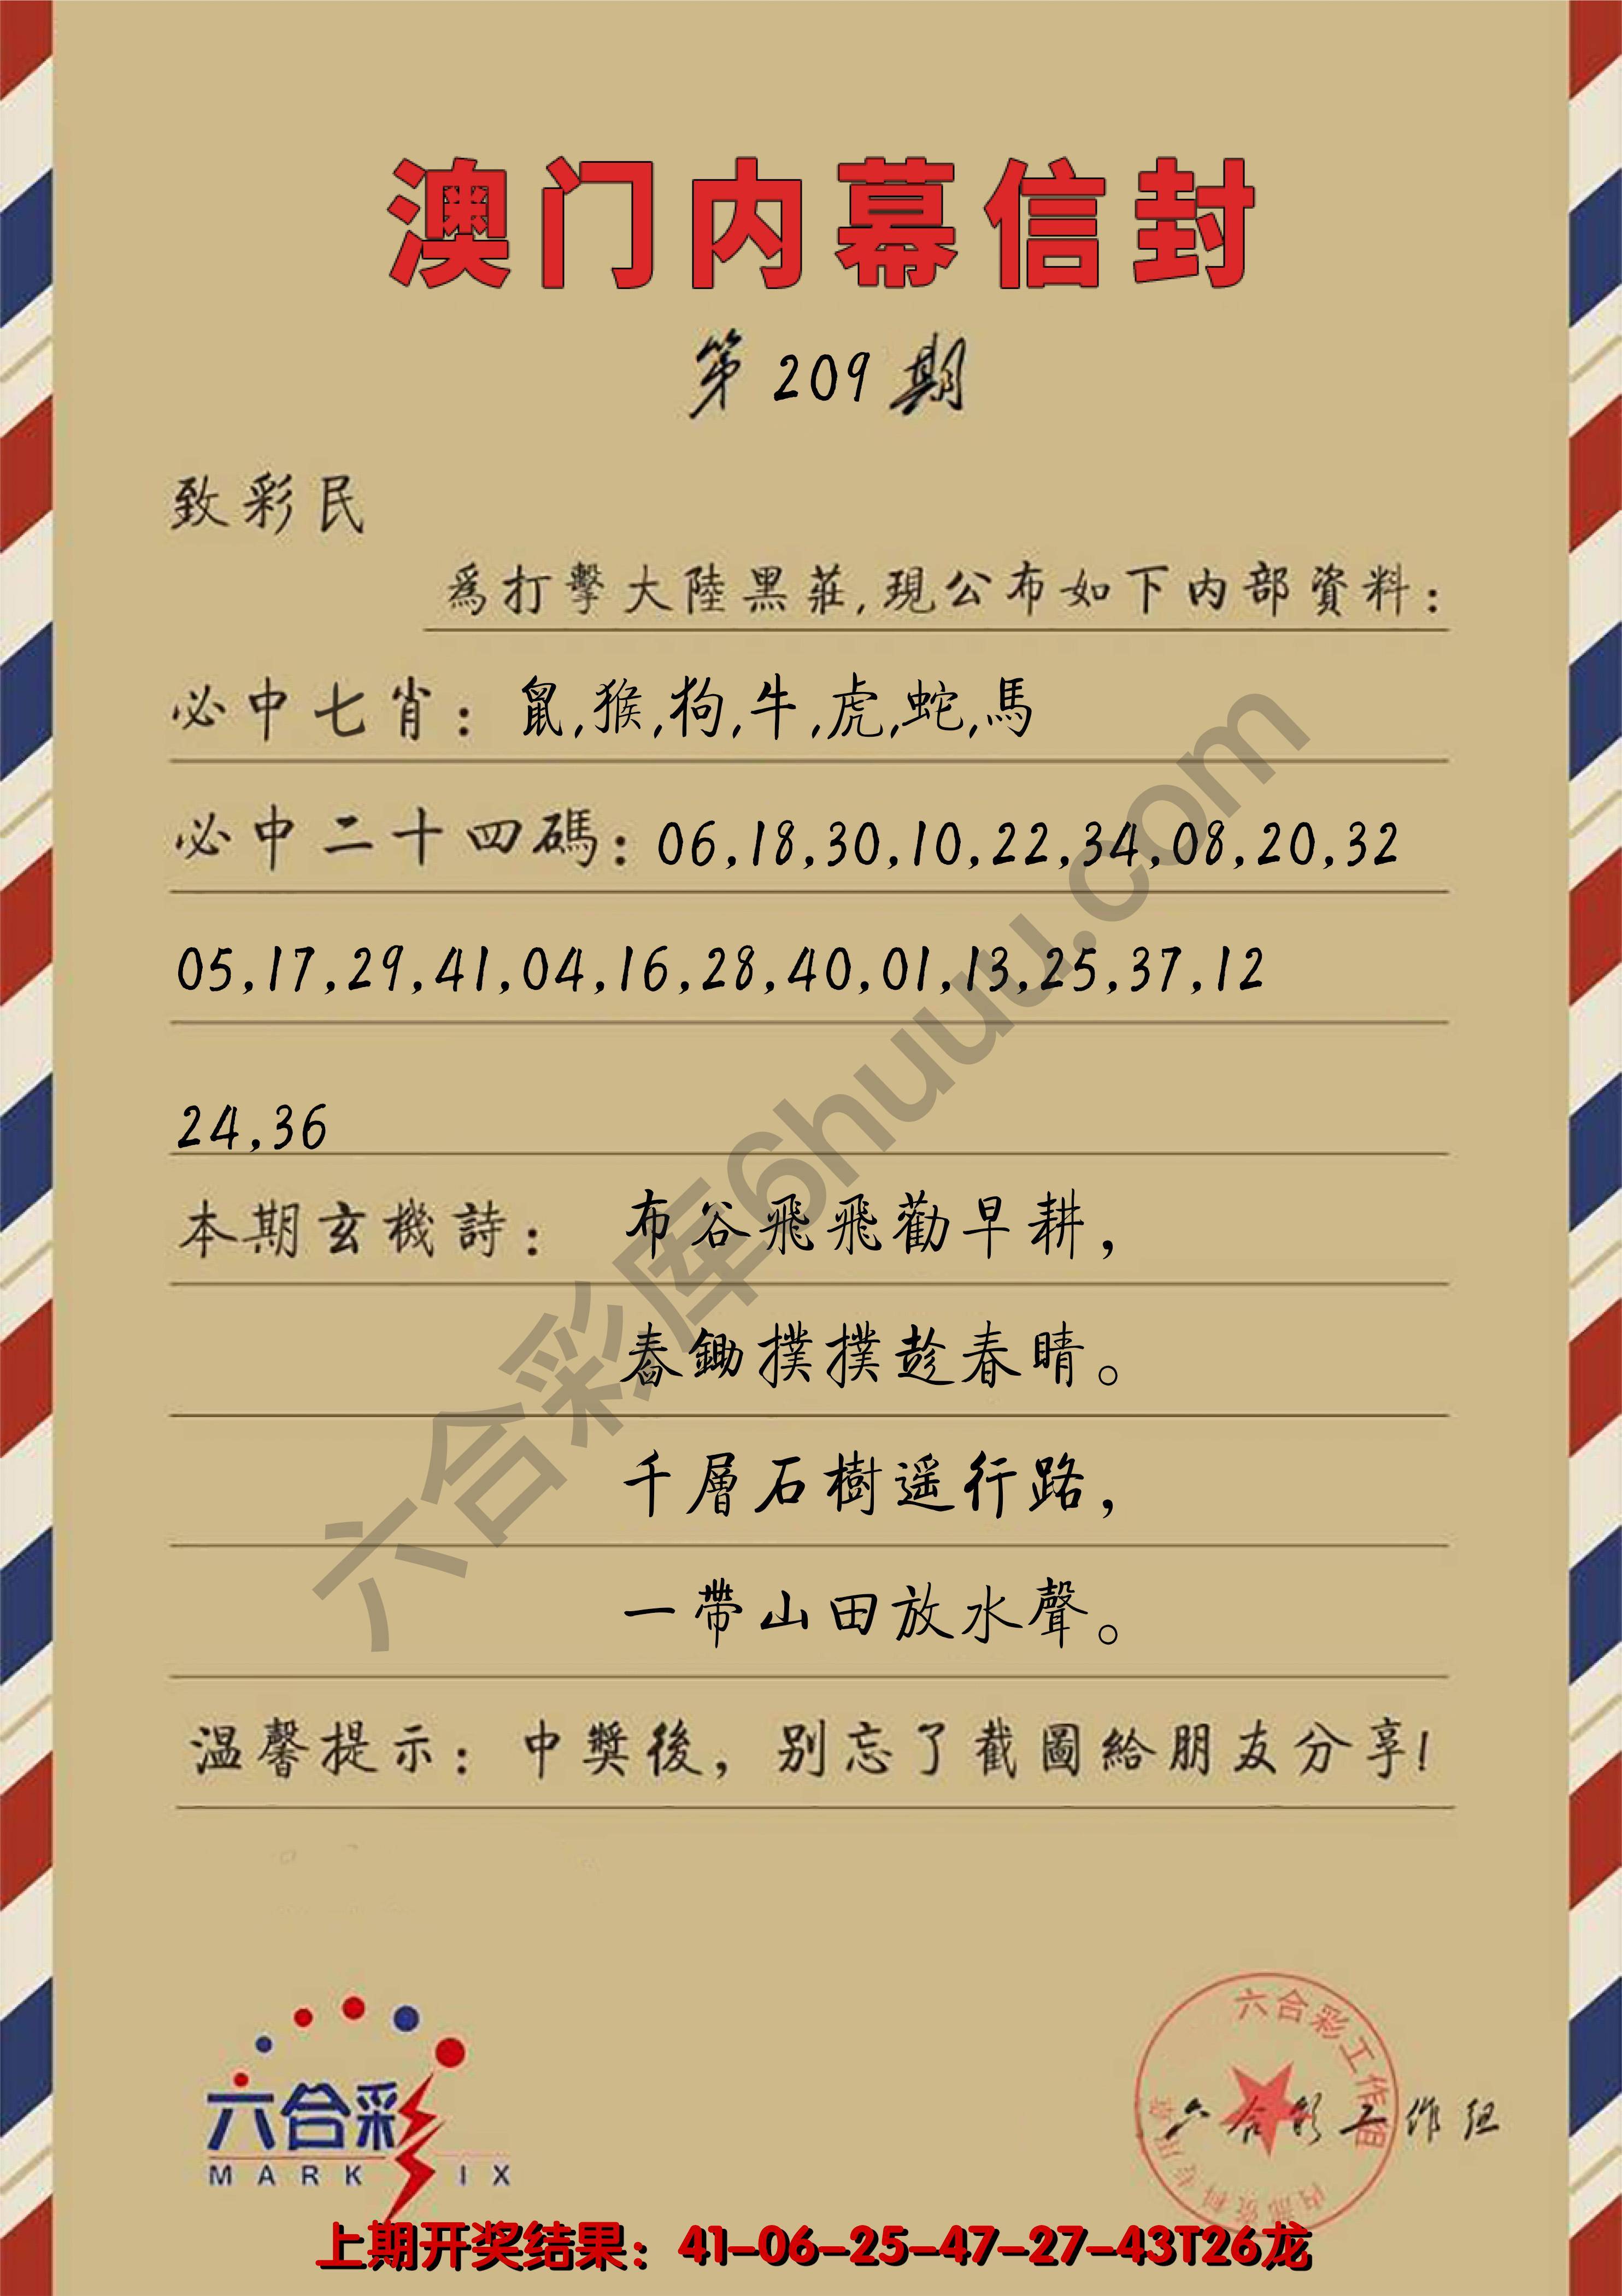 澳门内幕信封
第 209 期
致彩民
爲打擊大陸黑莊,現公布如下内部資料:
必中七肖: 鼠,猴,狗,牛,虎,蛇,馬
必中二十四碼: 06,18,30,10,22,34,08,20,32
05,17,29,41,04,16,28,40,01,13,25,37,12
24,36
本期玄機詩: 布谷飛飛勸早耕,
舂鋤撲撲趁春晴。
千層石樹遥行路,
一帶山田放水聲。
温馨提示: 中獎後, 别忘了截圖給朋友分享!
六合彩库6huuu.com
六合彩
MARK SIX
六合彩工作组
内部资料专用章
六合彩工作组
上期开奖结果: 41-06-25-47-27-43T26龙